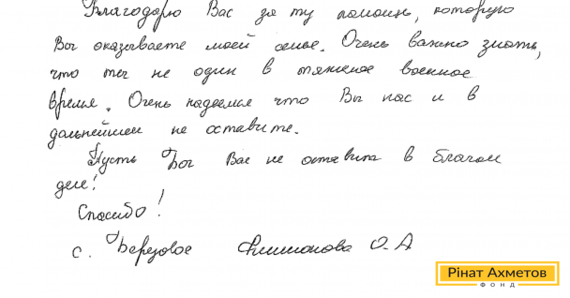 Благодарю Вас за ту помощь, которую
Вы оказываете моей семье. Очень важно знать,
что ты не один в тяжкое военное
время. Очень надеемся что Вы нас и в
дальнейшем не оставите.
Пусть Бог Вас не оставит в благом
деле!
Спасибо!
с. Березовое Филимонова О. А
Рінат Ахметов
ФОНД